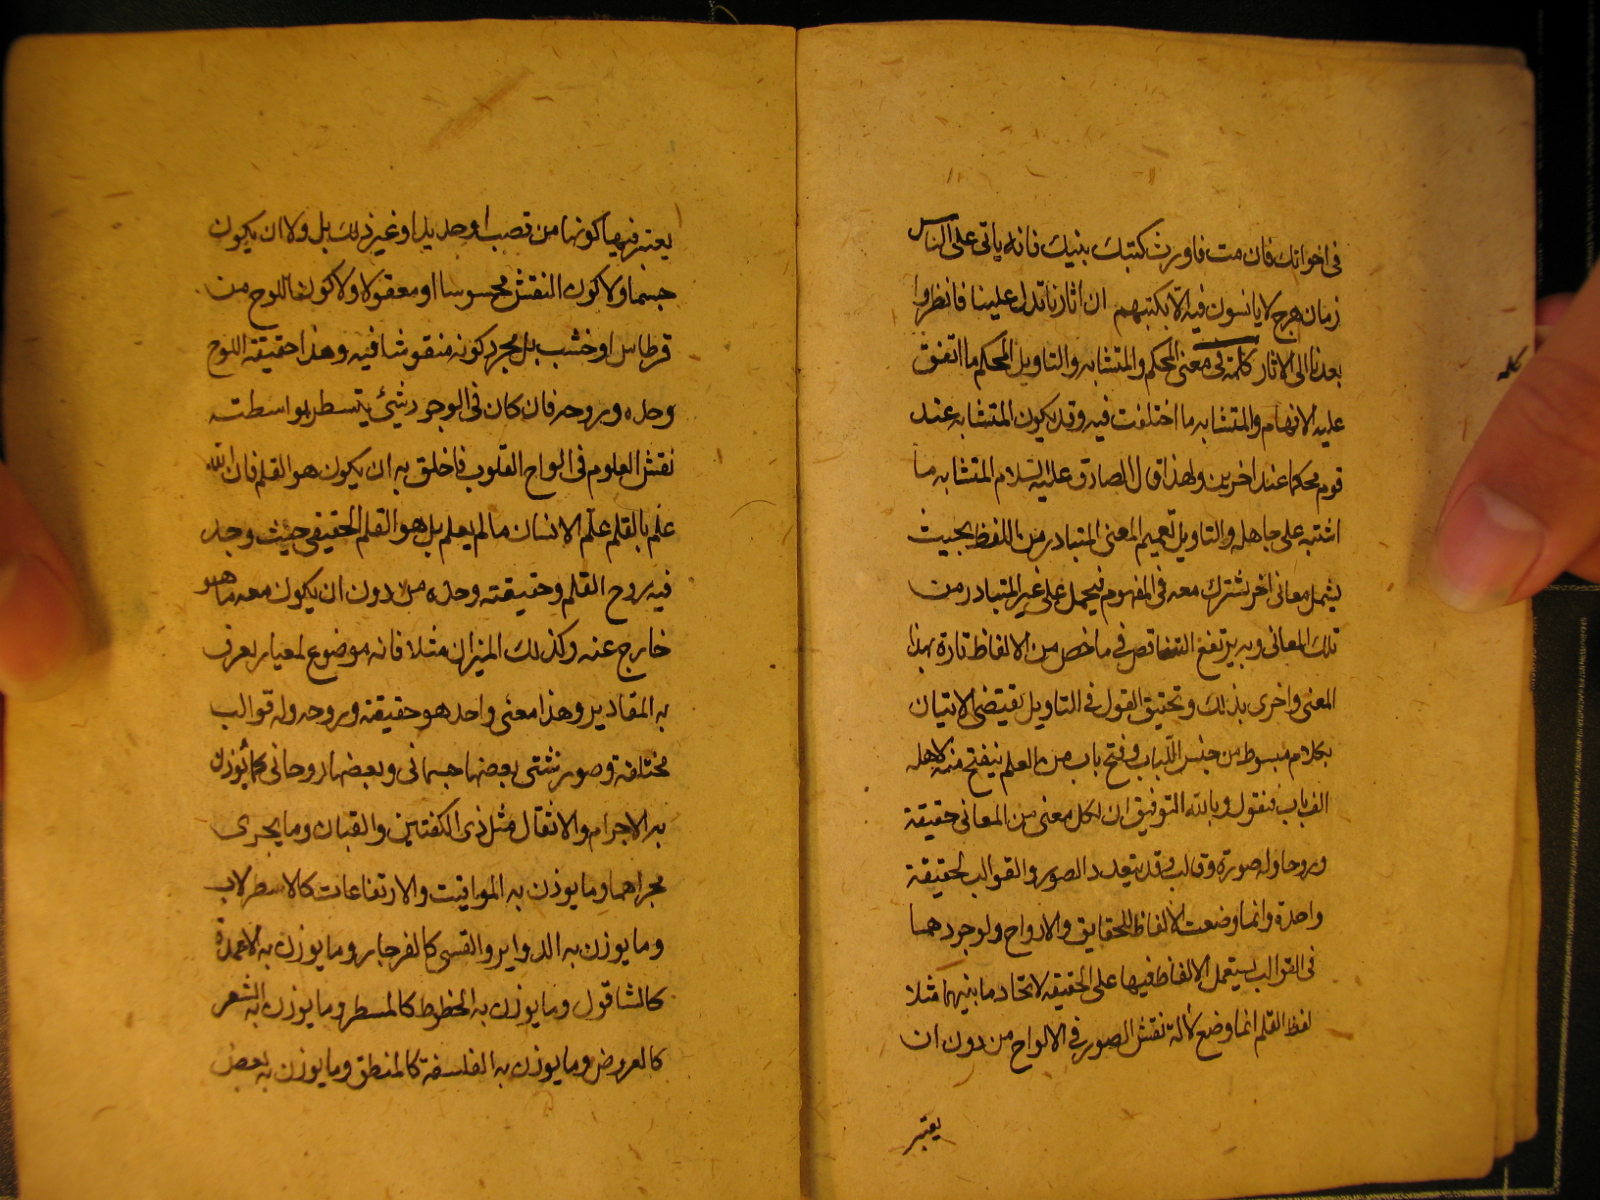 فى اخوانك فان مت فاورث كتبك بنيك فانه ياتى على الناس
زمان هرج لا يانسون فيه الّا بكتبهم ان اثارنا تدل علينا فانظروا
بعدنا الى الاثار كلمة فى معنى المحكم والمتشابه والتاويل المحكم ما اتفق
كلمه
عليه الافهام والمتشابه ما اختلفت فيه وقد يكون المتشابه عند
قوم محكما عند اخرين ولهذا قال الصادق عليه السلام المتشابه ما
اشتبه على جاهله والتاويل تعميم المعنى المتبادر من اللفظ بحيث
يشمل معانى اخر تشترك معه فى المفهوم فيحمل على غير المتبادر من
تلك المعانى وبه يرتفع التناقض فى ما خص من الالفاظ تارة بهذا
المعنى واخرى بذلك وتحقيق القول فى التاويل يقتضى الاتيان
بكلام مبسوط من جنس اللّباب وفتح باب من العلم ينفتح منه لاهله
الف باب فنقول وبالله التوفيق ان لكل معنى من المعانى حقيقة
وروحا وله صورة وقالب وقد يتعدد الصور والقوالب لحقيقة
واحدة وانما وضعت الالفاظ للحقايق والارواح ولوجودهما
فى القوالب يستعمل الالفاظ فيها على الحقيقه لاتحاد ما بينهما مثلا
لفظ القلم انما وضع لآلة نقش الصور فى الالواح من دون ان
يعتبر
يعتبر فيها كونها من قصب او حديد او غير ذلك بل ولا ان يكون
جسما ولا كون النقش محسوسا او معقولا ولا كون اللوح من
قرطاس او خشب بل مجرد كونه منقوشا فيه وهذا حقيقة اللوح
وحده وروحه فان كان فى الوجود شئ يتسطر بواسطته
نقش العلوم فى الواح القلوب فاخلق به ان يكون هو القلم فان الله
علم بالقلم علّم الانسان ما لم يعلم بل هو القلم الحقيقى حيث وجد
فيه روح القلم وحقيقته وحدّه من دون ان يكون معه ما هو
خارج عنه وكذلك الميزان مثلا فانه موضوع لمعيار يعرف
به المقادير وهذا معنى واحد هو حقيقته وروحه وله قوالب
مختلفة وصور شتى بعضها جسمانى وبعضها روحانى كما يوزن
به الاجرام والاثقال مثل ذى الكفتين والقبان وما يجرى
مجراهما وما يوزن به المواقيت والارتفاعات كالاسطرلاب
وما يوزن به الدواير والقسى كالفرجار وما يوزن به الاعمدة
كالشاقول وما يوزن به الخطوط كالمسطر وما يوزن به الشعر
كالعروض وما يوزن به الفلسفة كالمنطق وما يوزن به بعض